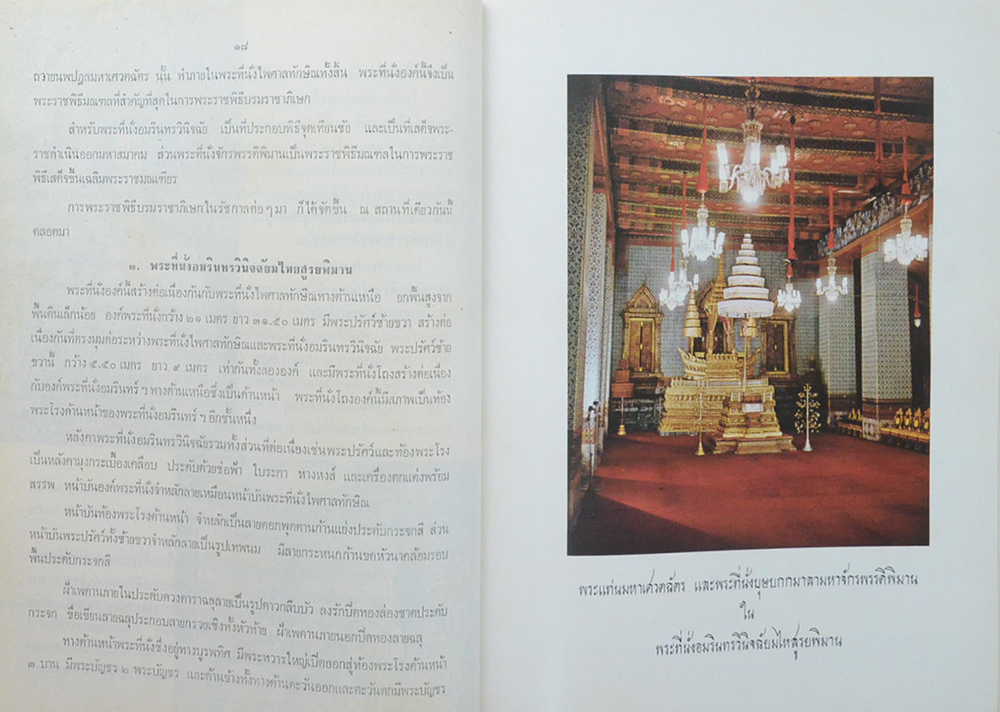 ๑๘
ถวายนพปฎลมหาเศวตฉัตร นั้น ทำภายในพระที่นั่งไพศาลทักษิณทั้งสิ้น พระที่นั่งองค์นี้จึงเป็น
พระราชพิธีมณฑลที่สำคัญที่สุดในการพระราชพิธีบรมราชาภิเษก
สำหรับพระที่นั่งอมรินทรวินิจฉัย เป็นที่ประกอบพิธีจุดเทียนชัย และเป็นที่เสด็จพระ-
ราชดำเนินออกมหาสมาคม ส่วนพระที่นั่งจักรพรรดิพิมานเป็นพระราชพิธีมณฑลในการพระราช
พิธีเสด็จขึ้นเฉลิมพระราชมณเฑียร
การพระราชพิธีบรมราชาภิเษกในรัชกาลต่อๆ มา ก็ได้จัดขึ้น ณ สถานที่เดียวกันนี้
ตลอดมา
๑. พระที่นั่งอมรินทรวินิจฉัยมไหยสูรยพิมาน
พระที่นั่งองค์นี้สร้างต่อเนื่องกันกับพระที่นั่งไพศาลทักษิณทางด้านเหนือ ยกพื้นสูงจาก
พื้นดินเล็กน้อย องค์พระที่นั่งกว้าง ๒๑ เมตร ยาว ๓๑.๕๐ เมตร มีพระปรัศว์ซ้ายขวา สร้างต่อ
เนื่องกันที่ตรงมุมต่อระหว่างพระที่นั่งไพศาลทักษิณและพระที่นั่งอมรินทรวินิจฉัย พระปรัศว์ซ้าย
ขวานี้ กว้าง ๕.๕๐ เมตร ยาว ๙ เมตร เท่ากันทั้งสององค์ และมีพระที่นั่งโถงสร้างต่อเนื่อง
กับองค์พระที่นั่งอมรินทร์ ฯ ทางด้านเหนือซึ่งเป็นด้านหน้า พระที่นั่งโถงองค์นี้มีสภาพเป็นท้อง
พระโรงด้านหน้าของพระที่นั่งอมรินทร์ ฯ อีกชั้นหนึ่ง
หลังคาพระที่นั่งอมรินทรวินิจฉัยรวมทั้งส่วนที่ต่อเนื่องเช่นพระปรัศว์และท้องพระโรง
เป็นหลังคามุงกระเบื้องเคลือบ ประดับด้วยช่อฟ้า ใบระกา หางหงส์ และเครื่องตกแต่งพร้อม
สรรพ หน้าบันองค์พระที่นั่งจำหลักลายเหมือนหน้าบันพระที่นั่งไพศาลทักษิณ
หน้าบันท้องพระโรงด้านหน้า จำหลักเป็นลายดอกพุดตานก้านแย่งประดับกระจกสี ส่วน
หน้าบันพระปรัศว์ทั้งซ้ายขวาจำหลักลายเป็นรูปเทพนม มีลายกระหนกก้านขดหัวนาคล้อมรอบ
พื้นประดับกระจกสี
ฝ้าเพดานภายในประดับดวงดาราฉลุลายเป็นรูปดาวกลีบบัว ลงรักปิดทองล่องชาดประดับ
กระจก ขื่อเขียนลายฉลุประกอบลายกรวยเชิงทั้งหัวท้าย ฝ้าเพดานภายนอกปิดทองลายฉลุ
ทางด้านหน้าพระที่นั่งซึ่งอยู่ทางบูรพทิศ มีพระทวารใหญ่เปิดออกสู่ท้องพระโรงด้านหน้า
๓ บาน มีพระบัญชร ๒ พระบัญชร และด้านข้างทั้งทางด้านตะวันออกและตะวันตกมีพระบัญชร
พระแท่นมหาเศวตฉัตร และพระที่นั่งบุษบกมาลามหาจักรพรรดิพิมาน
ใน
พระที่นั่งอมรินทรวินิจฉัยมไหสูรยพิมาน